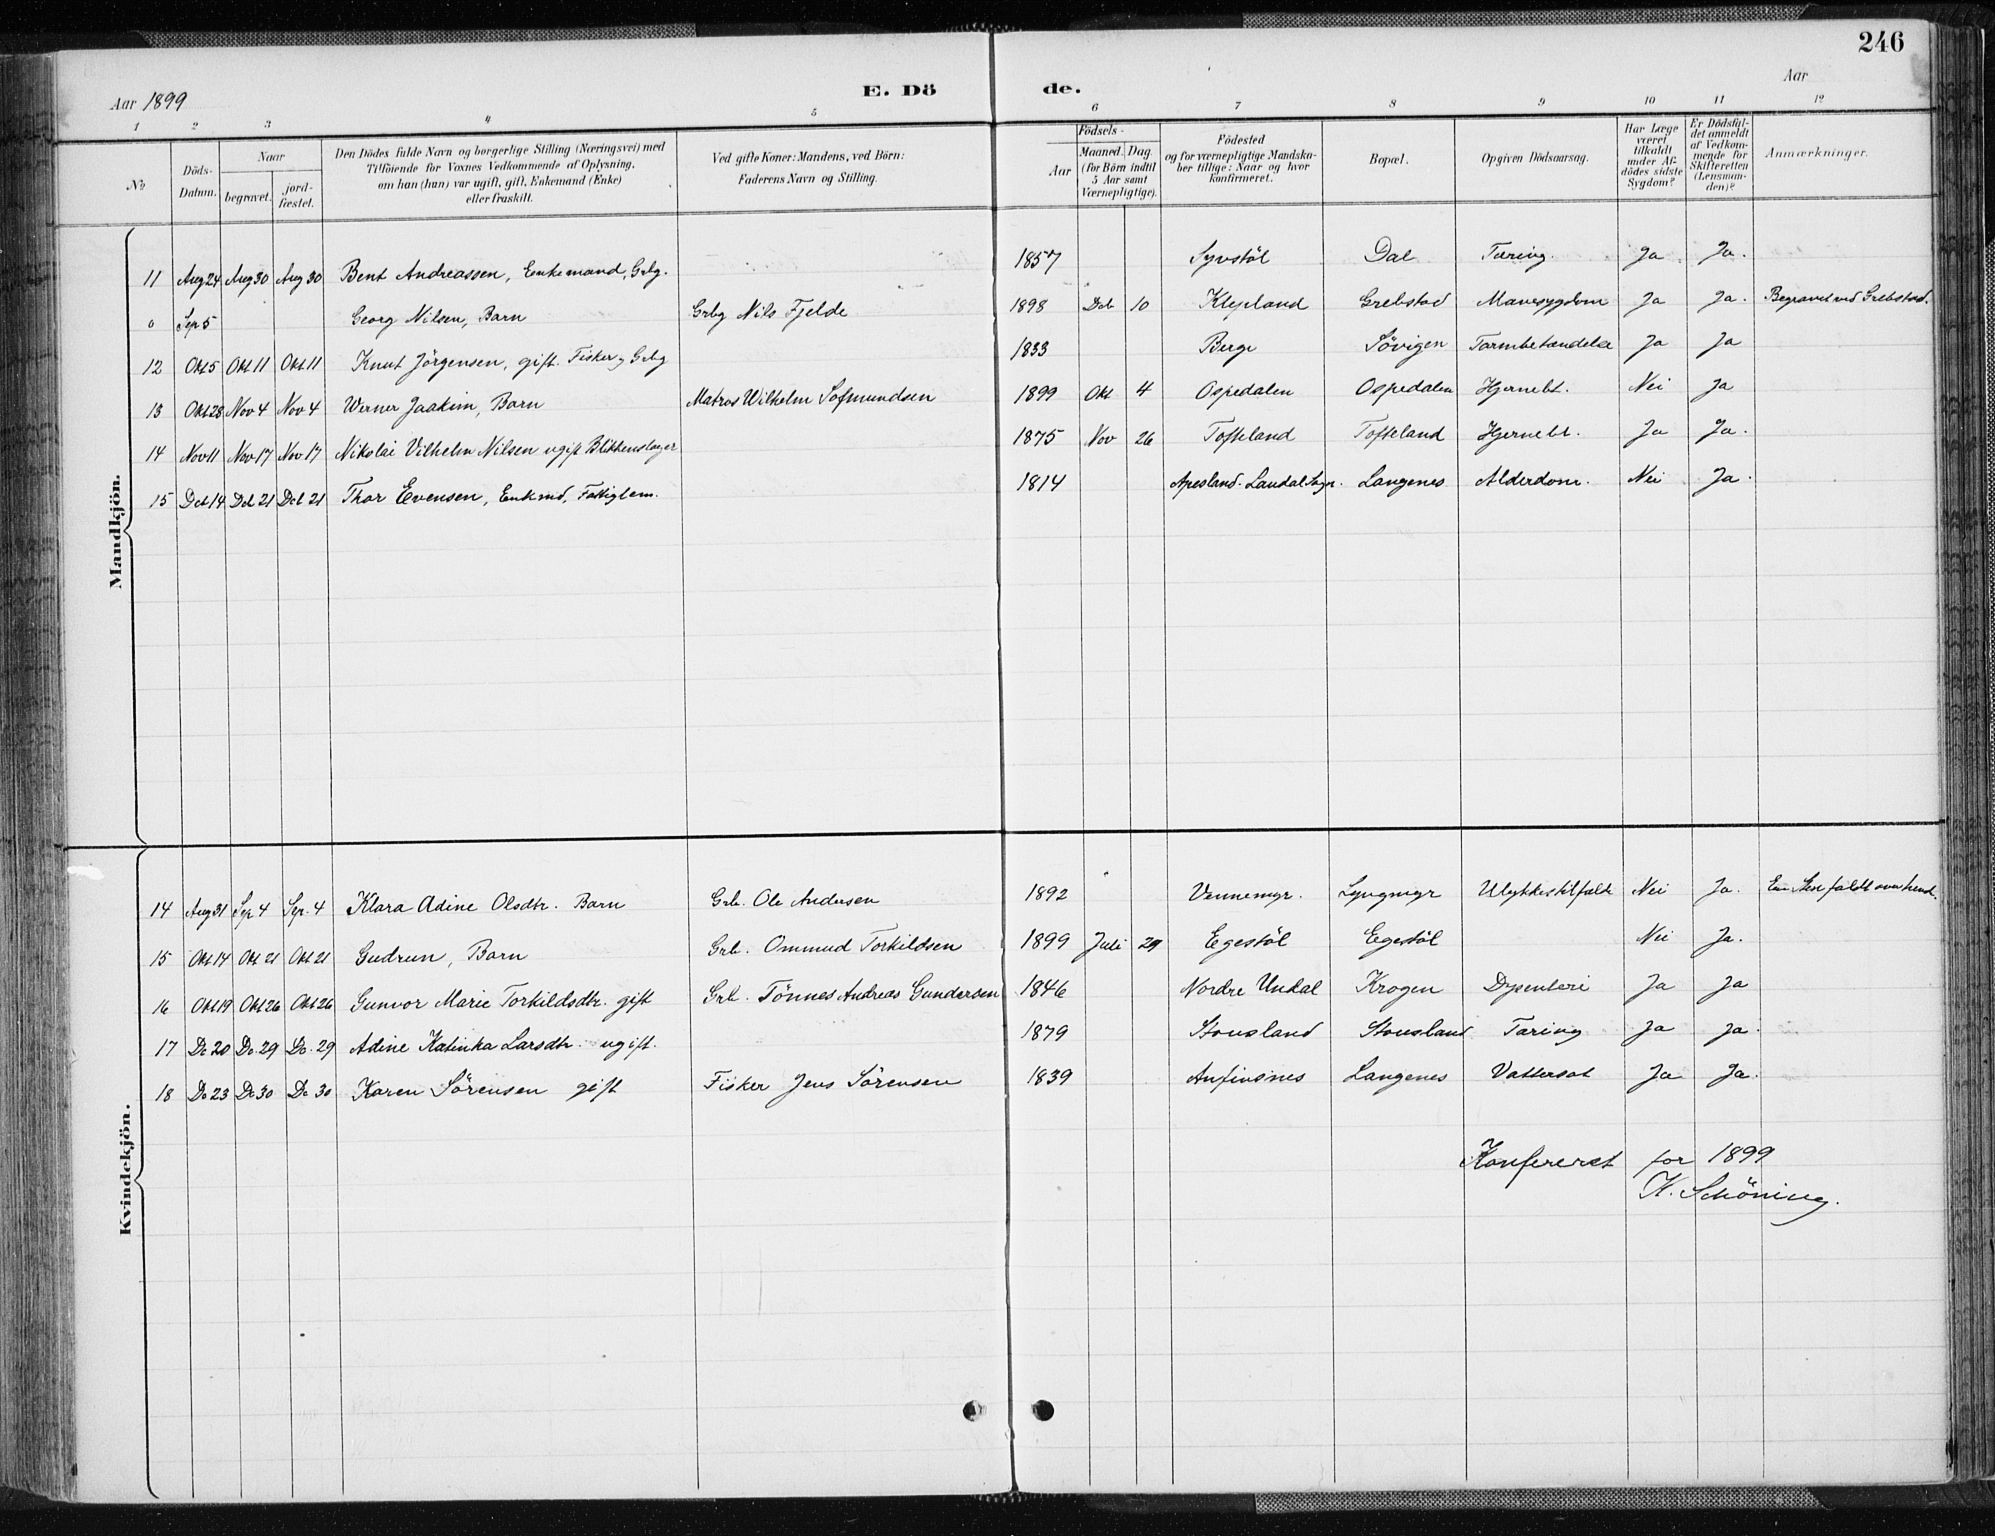 246
Aar 1899
E. Dö de.
Aar
1 2 3 4 5 6 7 8 9 10 11 12
No
Döds-Datum.
Naar
begravet.
jord-fæstet.
Den Dödes fulde Navn og borgerlige Stilling (Næringsvei) med
Tilföiende for Voxnes Vedkommende af Oplysning,
om han (hun) var ugift, gift, Enkemand (Enke)
eller fraskilt.
Ved gifte Koner: Mandens, ved Börn:
Faderens Navn og Stilling.
Födsels-
Aar
Maaned. Dag
(for Börn indtil
5 Aar samt
Værnepligtige).
Födested
og for værnepligtige Mandska-
ber tillige: Naar og hvor
konfirmeret.
Bopæl.
Opgiven Dödsaarsag.
Har Læge
været
tilkaldt
under Af-
dödes sidste
Sygdom?
Er Dödsfal-
det anmeldt
af Vedkom-
mende for
Skifteretten
(Lensman-
den)?
Anmærkninger.
Mandkjön.
11 Aug 24 Aug 30 Aug 30 Bent Andreassen, Enkemand, Grbg. 1857 Syvstöl Dal Tæring Ja Ja.
0 Sep 5 Georg Nilsen, Barn Grbg Nils Fjelde 1898 Deb 10 Klepland Grebstad Mavesygdom Ja Ja. Begravet ved Grebstad.
12 Okt 5 Okt 11 Okt 11 Knut Jörgensen, gift. Fisker og Grbg 1833 Berge Sövigen Tarmbetændelse Ja Ja
13 Okt 28 Nov 4 Nov 4 Werner Joakim, Barn Matros Wilhelm Sofmundsen 1899 Okt 4 Ospedalen Ospedalen Hjernebt. Nei Ja
14 Nov 11 Nov 17 Nov 17 Nikolai Vilhelm Nilsen ugift Blikkenslager 1875 Nov 26 Tofteland Tofteland Hjernebt. Ja Ja.
15 Deb 14 Deb 21 Deb 21 Thor Evensen, Enkmd, Fattiglem. 1814 Apesland. Laudal Sogn. Langenes Alderdom. Nei Ja.
Kvindekjön.
14 Aug 31 Sep 4 Sep. 4 Klara Adine Olsdtr. Barn Grb. Ole Andersen 1892 Vennemyr. Lyngmyr Ulykkestilfælde Nei Ja. En Sten faldt over hend.
15 Okt 14 Okt 21 Okt 21 Gudrun, Barn Grb. Ommud Torkildsen 1899 Juli 29 Egestöl Egestöl Nei Ja.
16 Okt 19 Okt 26 Okt 26 Gunvor Marie Torkildsdtr. gift Grb. Tönnes Andreas Gundersen 1846 Nordre Undal Krogen Dysenteri Ja Ja
17 Do 20 Do. 29 Do. 29 Adine Katinka Larsdtr. ugift. 1879 Stousland Stousland Tæring Ja Ja.
18 Do 23 Do 30 Do 30 Karen Sörensen gift Fisker Jens Sörensen 1839 Anfinsnes Langenes Vattersot Ja Ja.
Konfereret for 1899
K. Schöning.